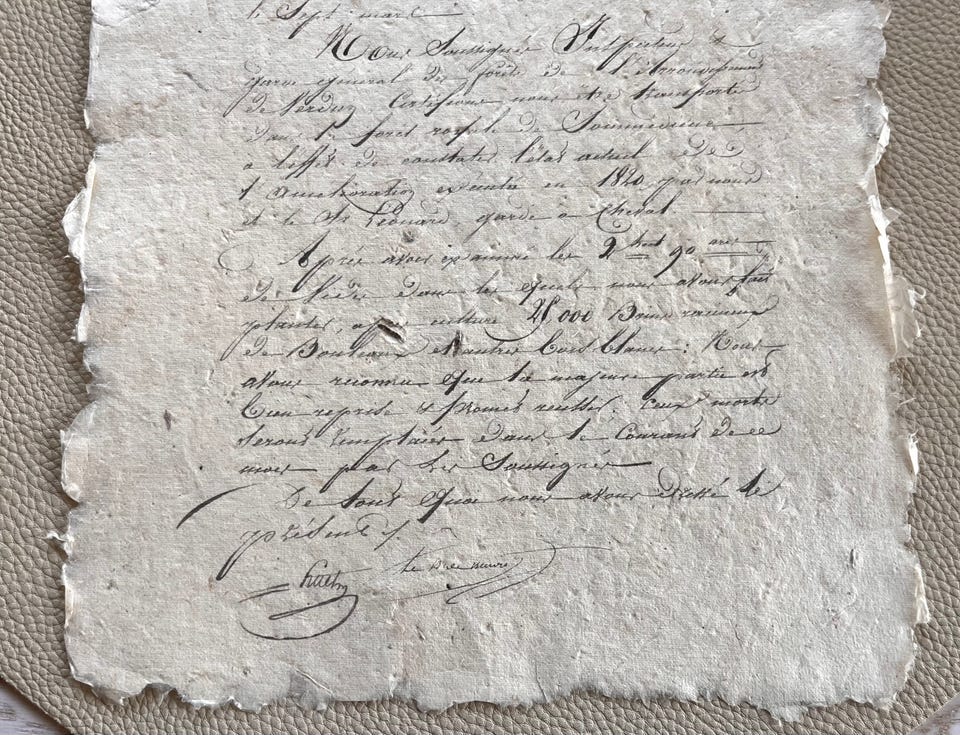 le Sept mars
Nous Soussignés Inspecteur &
garde general des forêts de l'arrondissement
de Verdun Certifions nous être transportés
dans la forêt royale de Sommedieue
a l'effet de constater l'état actuel de
l'amélioration exécutée en 1820, par nous
et le Sr Léonard garde a cheval.
Après avoir examiné les 2 hect 90 ares
de Vides dans les quels nous avons fait
planter, après culture 28000 Brins racineux
de Bouleaux et autres bois blancs: Nous
avons reconnu que la majeure partie est
bien reprise & promet réussite; Ceux morts
seront remplacés dans le Courant de ce
mois par les Soussignés
De tout quoi nous avons dressé le
présent